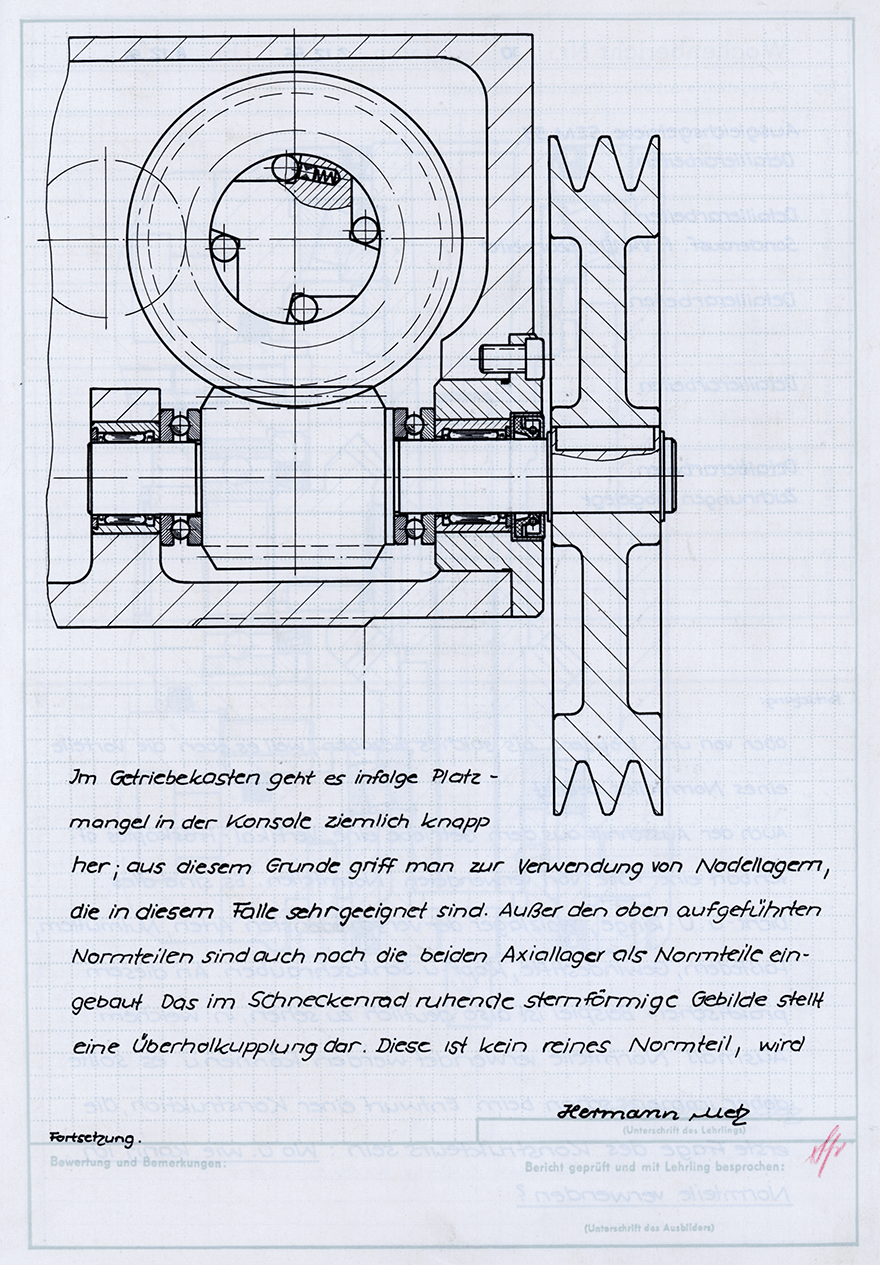 Im Getriebekasten geht es infolge Platz -
mangel in der Konsole ziemlich knapp
her; aus diesem Grunde griff man zur Verwendung von Nadellagern,
die in diesem Falle sehr geeignet sind. Außer den oben aufgeführten
Normteilen sind auch noch die beiden Axiallager als Normteile ein-
gebaut. Das im Schneckenrad ruhende sternförmige Gebilde stellt
eine Überholkupplung dar. Diese ist kein reines Normteil, wird
Hermann Metz
(Unterschrift des Lehrlings)
Fortsetzung.
Bewertung und Bemerkungen:
Bericht geprüft und mit Lehrling besprochen:
(Unterschrift des Ausbilders)